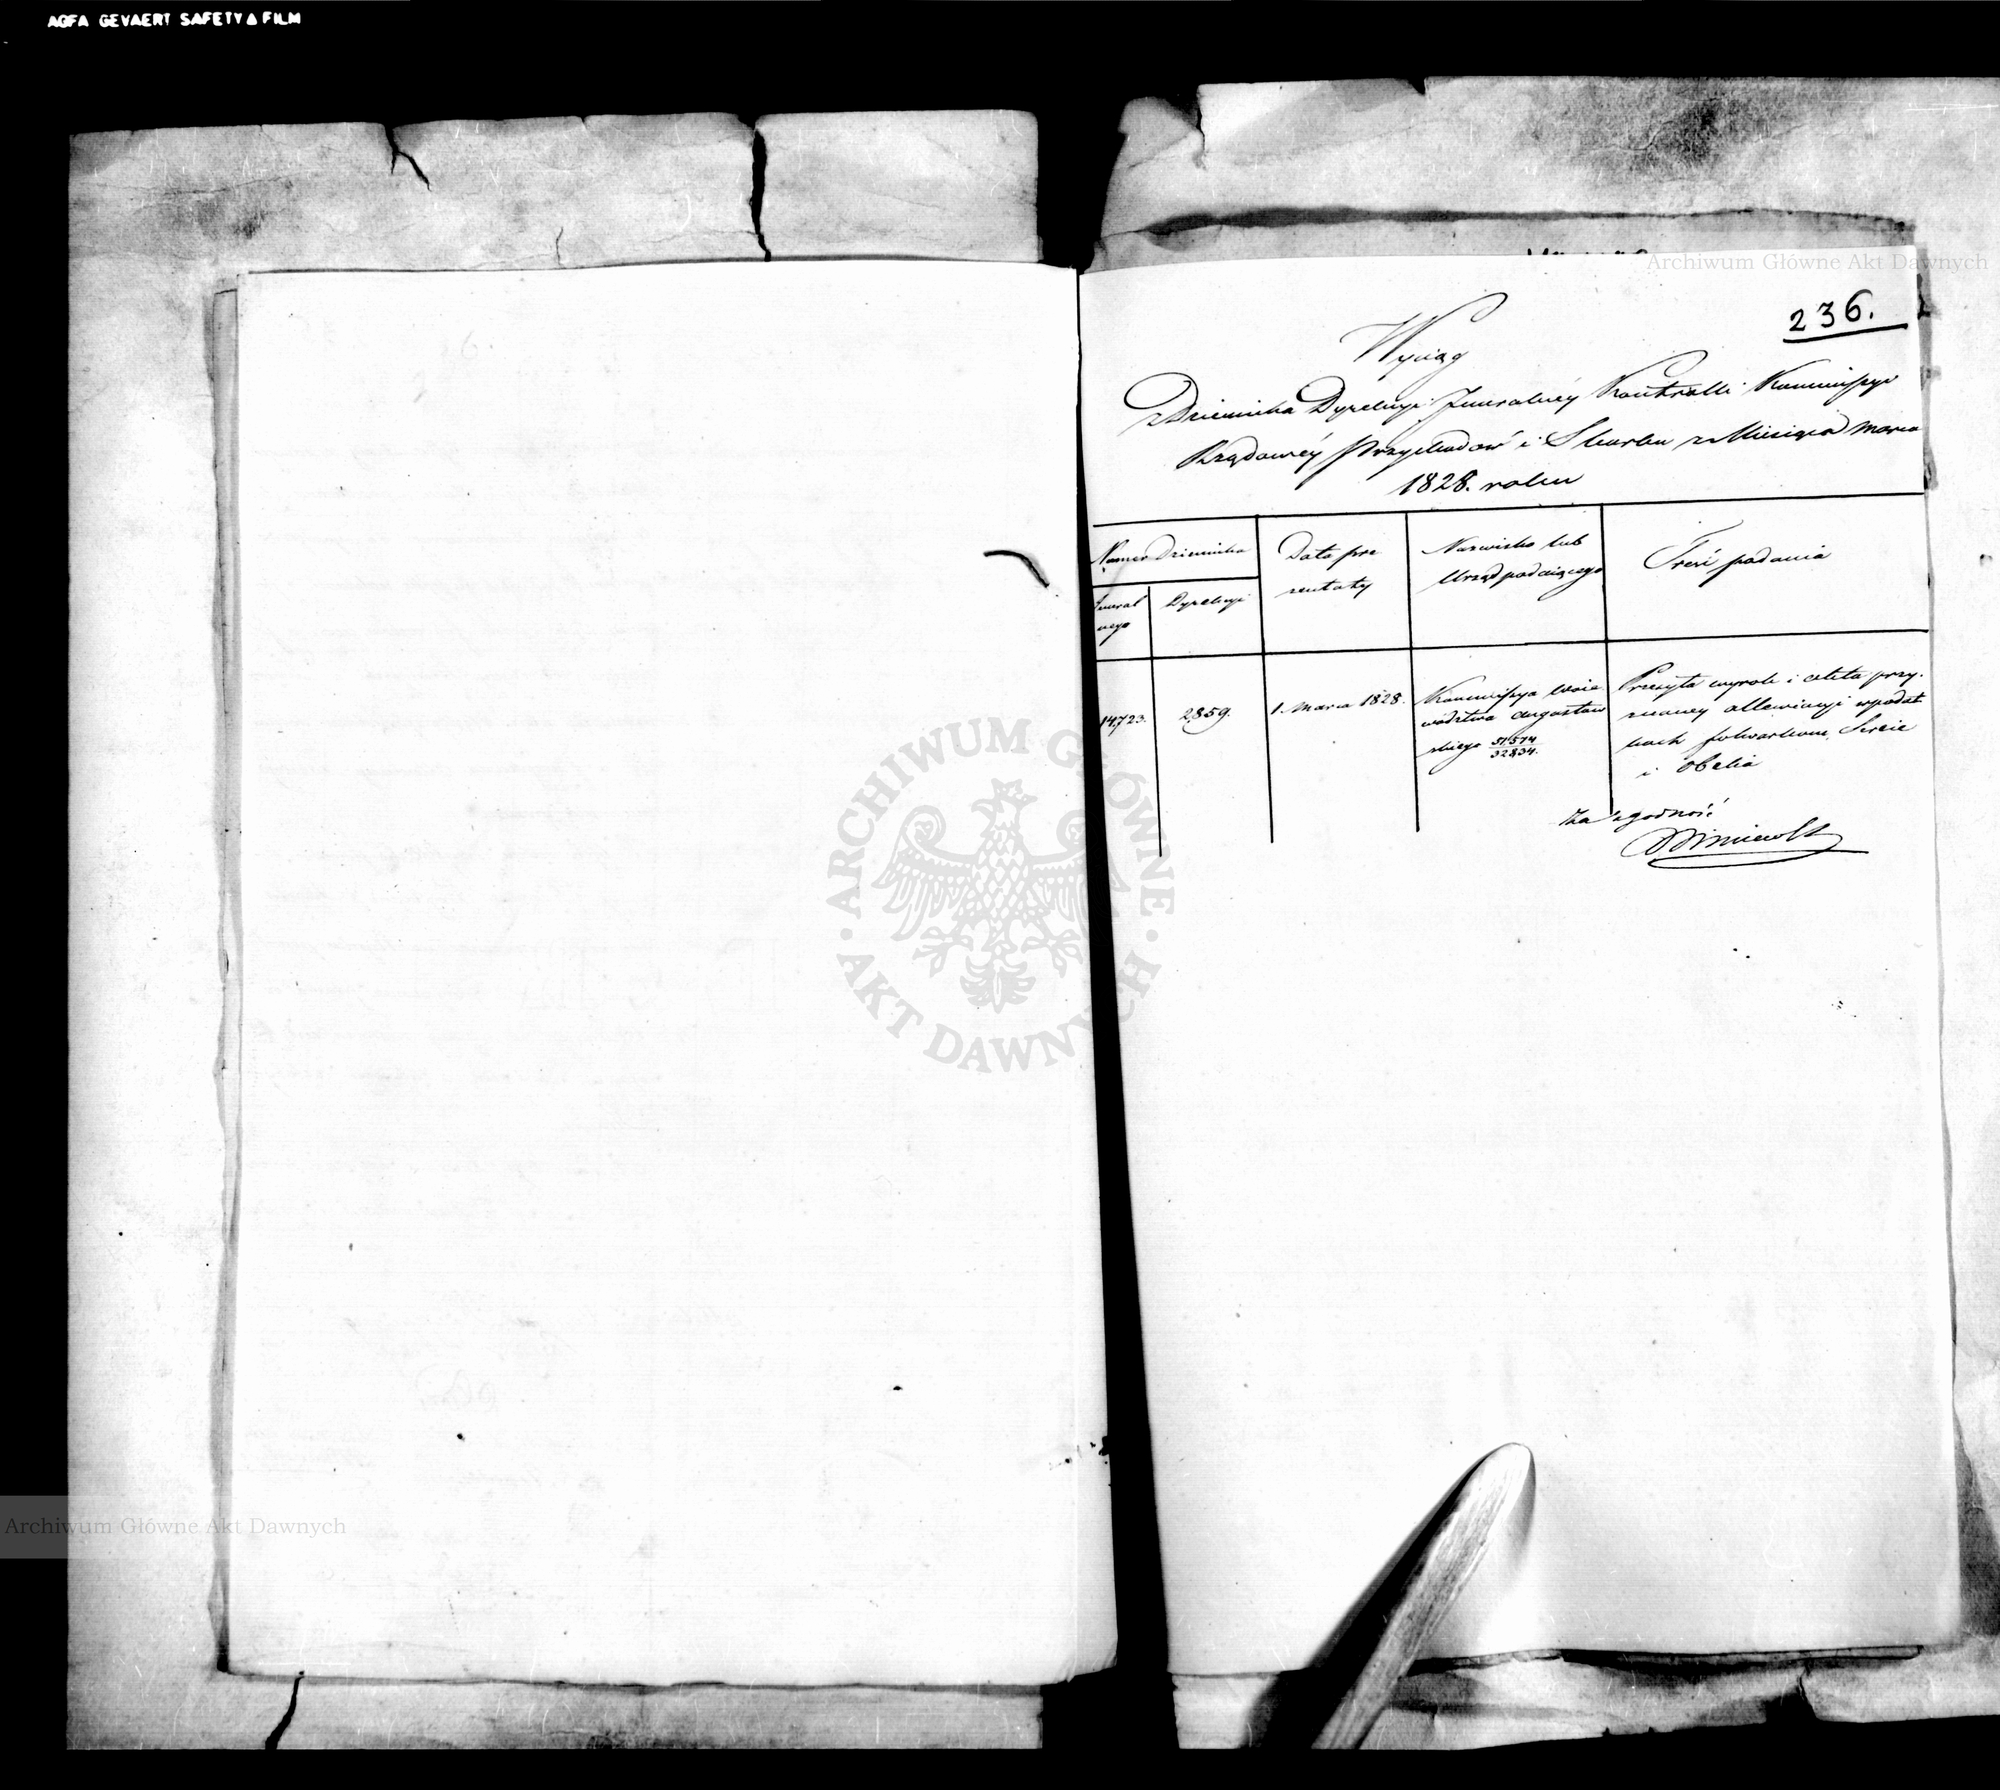 AGFA GEVAERT SAFETY FILM
Archiwum Główne Akt Dawnych
236.
Wyciąg
z Dziennika Dyrekcyi Jeneralnéy Kontrolli Kommissyi
Rządowéy Przychodów i Skarbu z Miesiąca Marca
1828. roku
Numer Dziennika
Jeneral
nego
Dyrekcyi
Data pre
zentaty
Nazwisko lub
Urząd podaiącego
Treść podania
14723.
2859.
1 Marca 1828.
Kommissya Woie
wodztwa Augustow
skiego 51574
32834.
Przesyła wyrok i przy.
znaney allewiacyi w podat
kach folwarkom Sereie
i Obelia
Za zgodność
ARCHIWUM GŁÓWNE
AKT DAWNYCH
Archiwum Główne Akt Dawnych